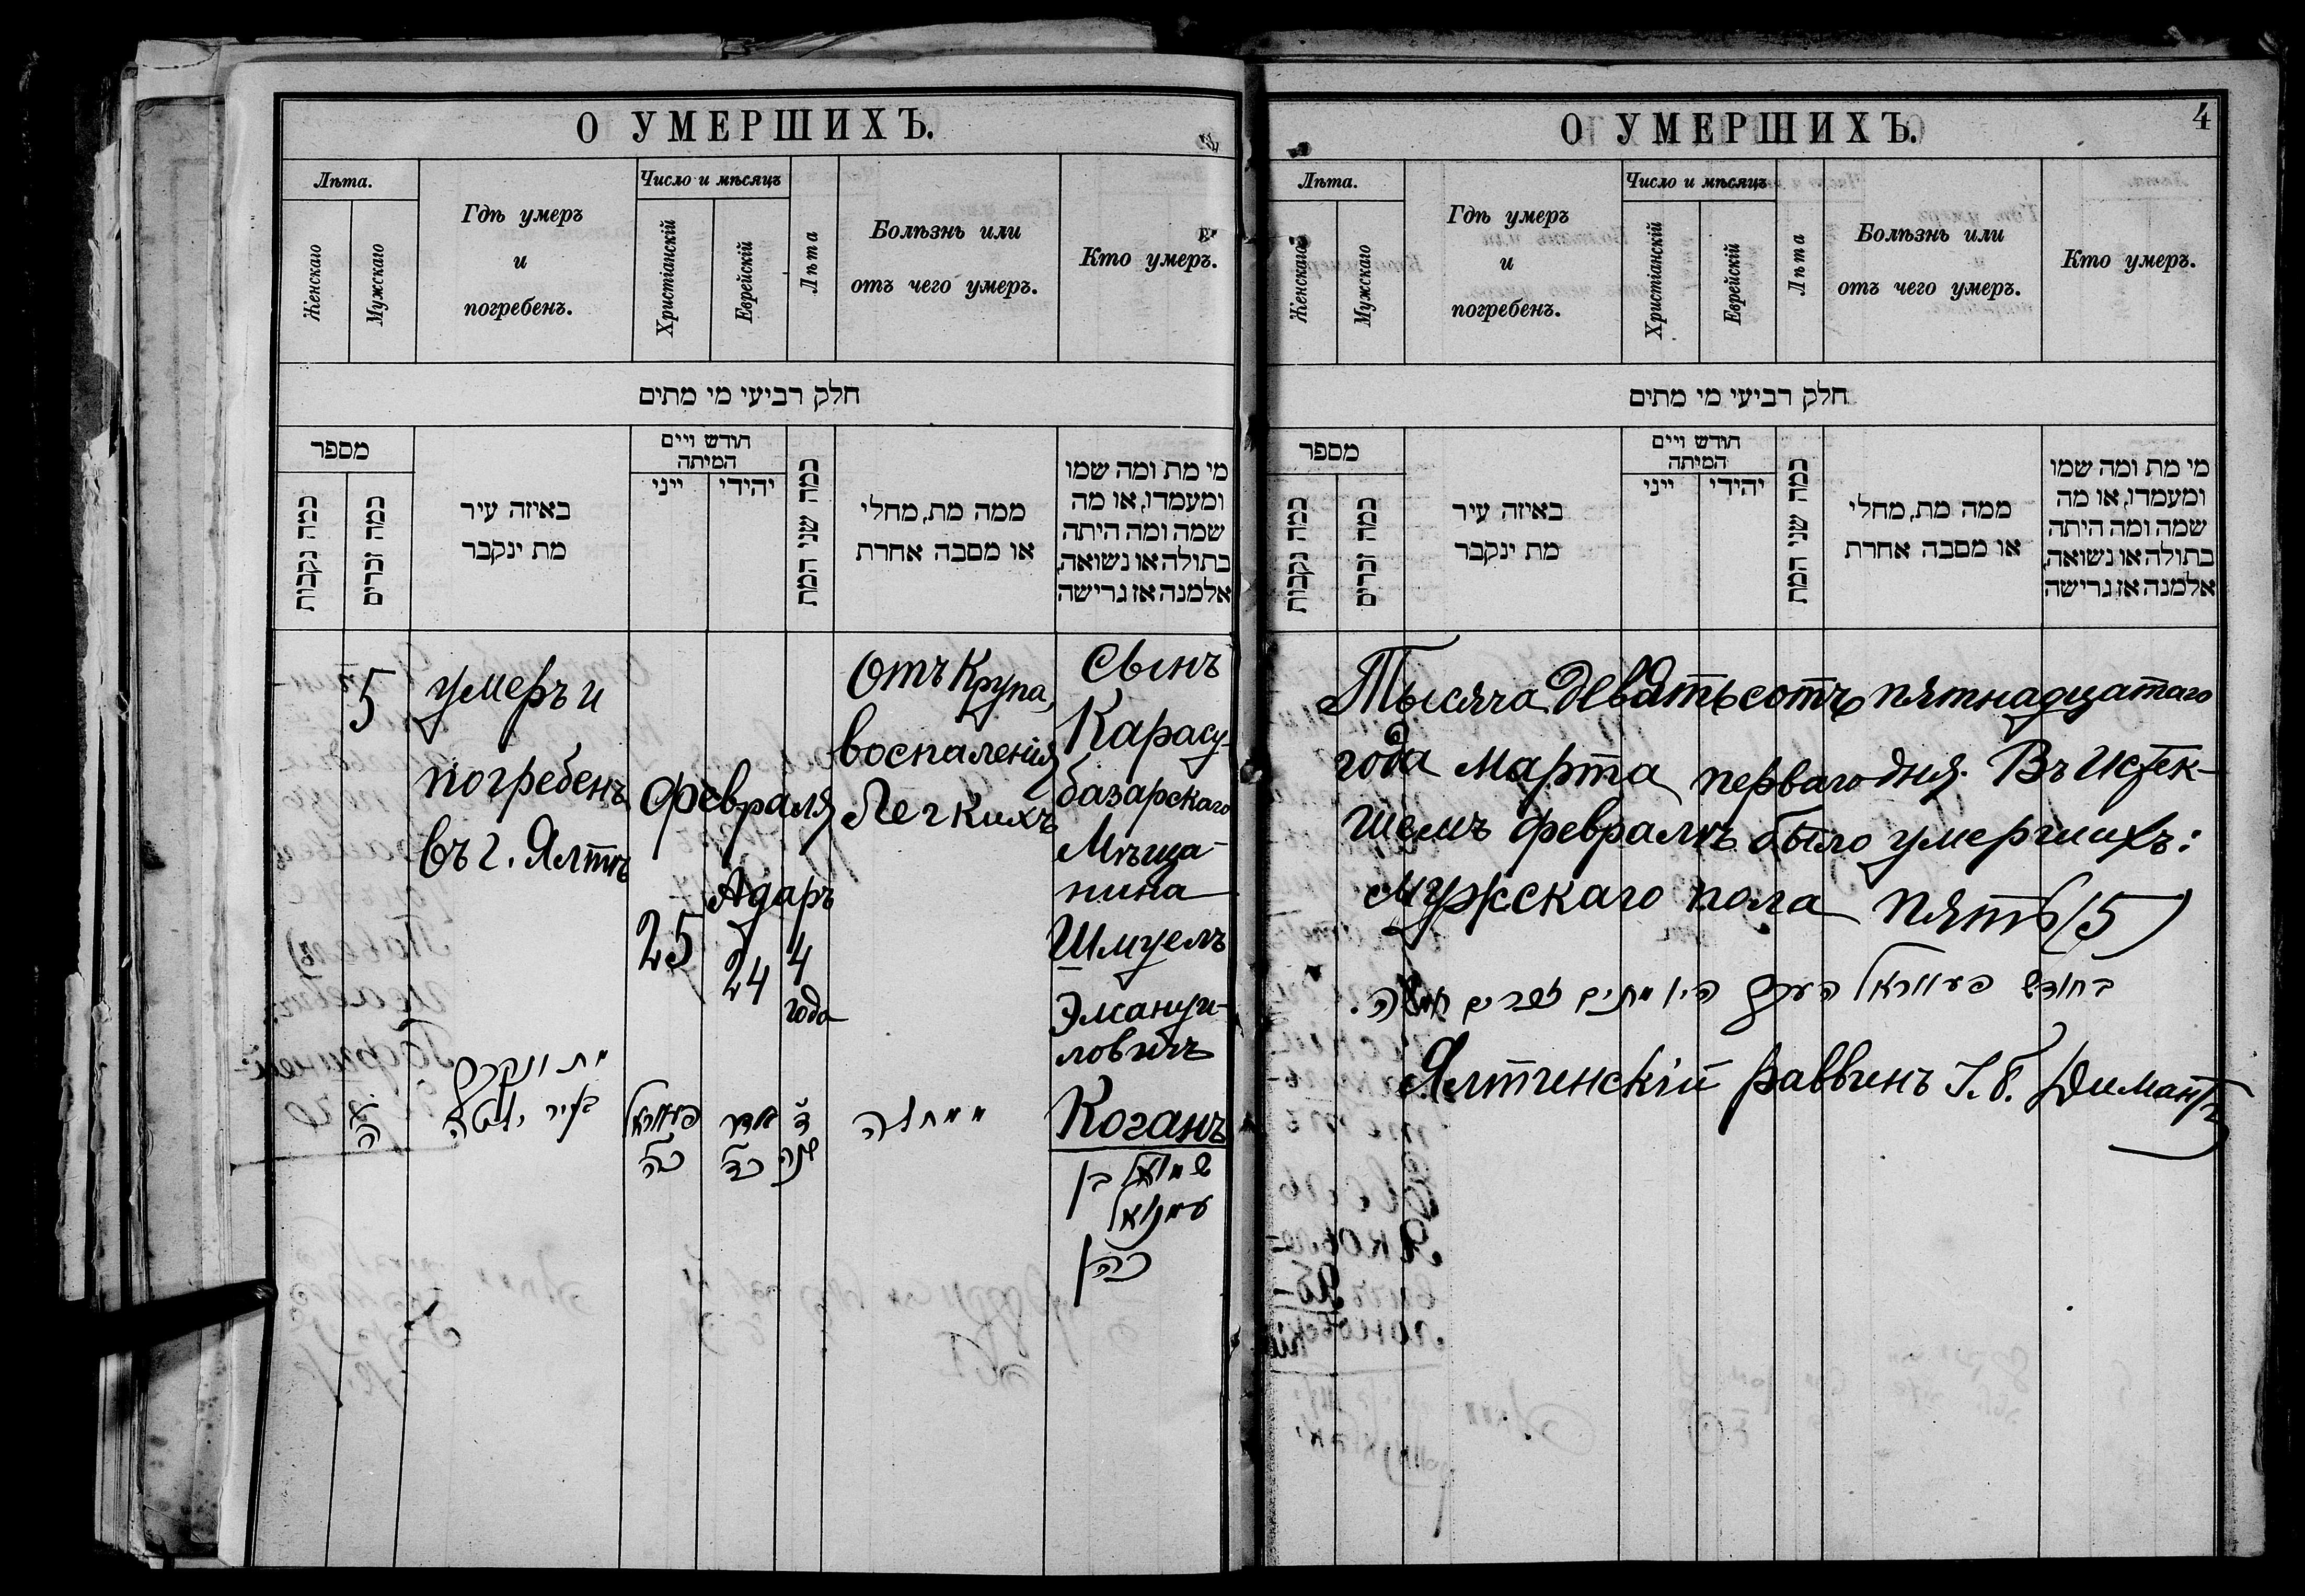 О УМЕРШИХЪ.
Лѣта.
Женскаго
Мужскаго
Гдѣ умеръ
и
погребенъ.
Число и мѣсяцъ
Христіанскій
Еврейскій
Лѣта
Болѣзнь или
отъ чего умеръ.
Кто умеръ.
חלק רביעי מי מתים
מספר
כמה נקבות
כמה זכרים
באיזה עיר
מת ינקבר
חודש ויים
המיתה
ייני
יהידי
כמה שני המת
ממה מת, מחלי
או מסבה אחרת
מי מת ומה שמו
ומעמדו, או מה
שמה ומה היתה
בתולה או נשואה,
אלמנה אז גרישה
5
умеръ и
погребенъ
въ г. Ялтѣ
Февраля
25
Адаръ
24
4
года
Отъ Крупа,
воспаленія
Легкихъ
Сынъ
Карасу-
базарскаго
Мѣща-
нина
Шмуель
Эмануи-
ловичъ
Коганъ
ה
מת ונקבר
בעיר יאלטא
פעווראל
כה
אדר
כד
ד
שנה
ממחלה
שמואל בן
עמנואל
כהן
4
О УМЕРШИХЪ.
Лѣта.
Женскаго
Мужскаго
Гдѣ умеръ
и
погребенъ.
Число и мѣсяцъ
Христіанскій
Еврейскій
Лѣта
Болѣзнь или
отъ чего умеръ.
Кто умеръ.
חלק רביעי מי מתים
מספר
כמה נקבות
כמה זכרים
באיזה עיר
מת ינקבר
חודש ויים
המיתה
ייני
יהידי
כמה שני המת
ממה מת, מחלי
או מסבה אחרת
מי מת ומה שמו
ומעמדו, או מה
שמה ומה היתה
בתולה או נשואה,
אלמנה אז גרישה
Тысяча девятьсотъ пятнадцатаго
года Марта перваго дня. Въ истек-
шемъ Февралѣ было умершихъ:
Мужскаго пола пять (5)
בחודש פעווראל העבר היו מתים זכרים חמשה.
Ялтинскій раввинъ І. Б. Димантъ